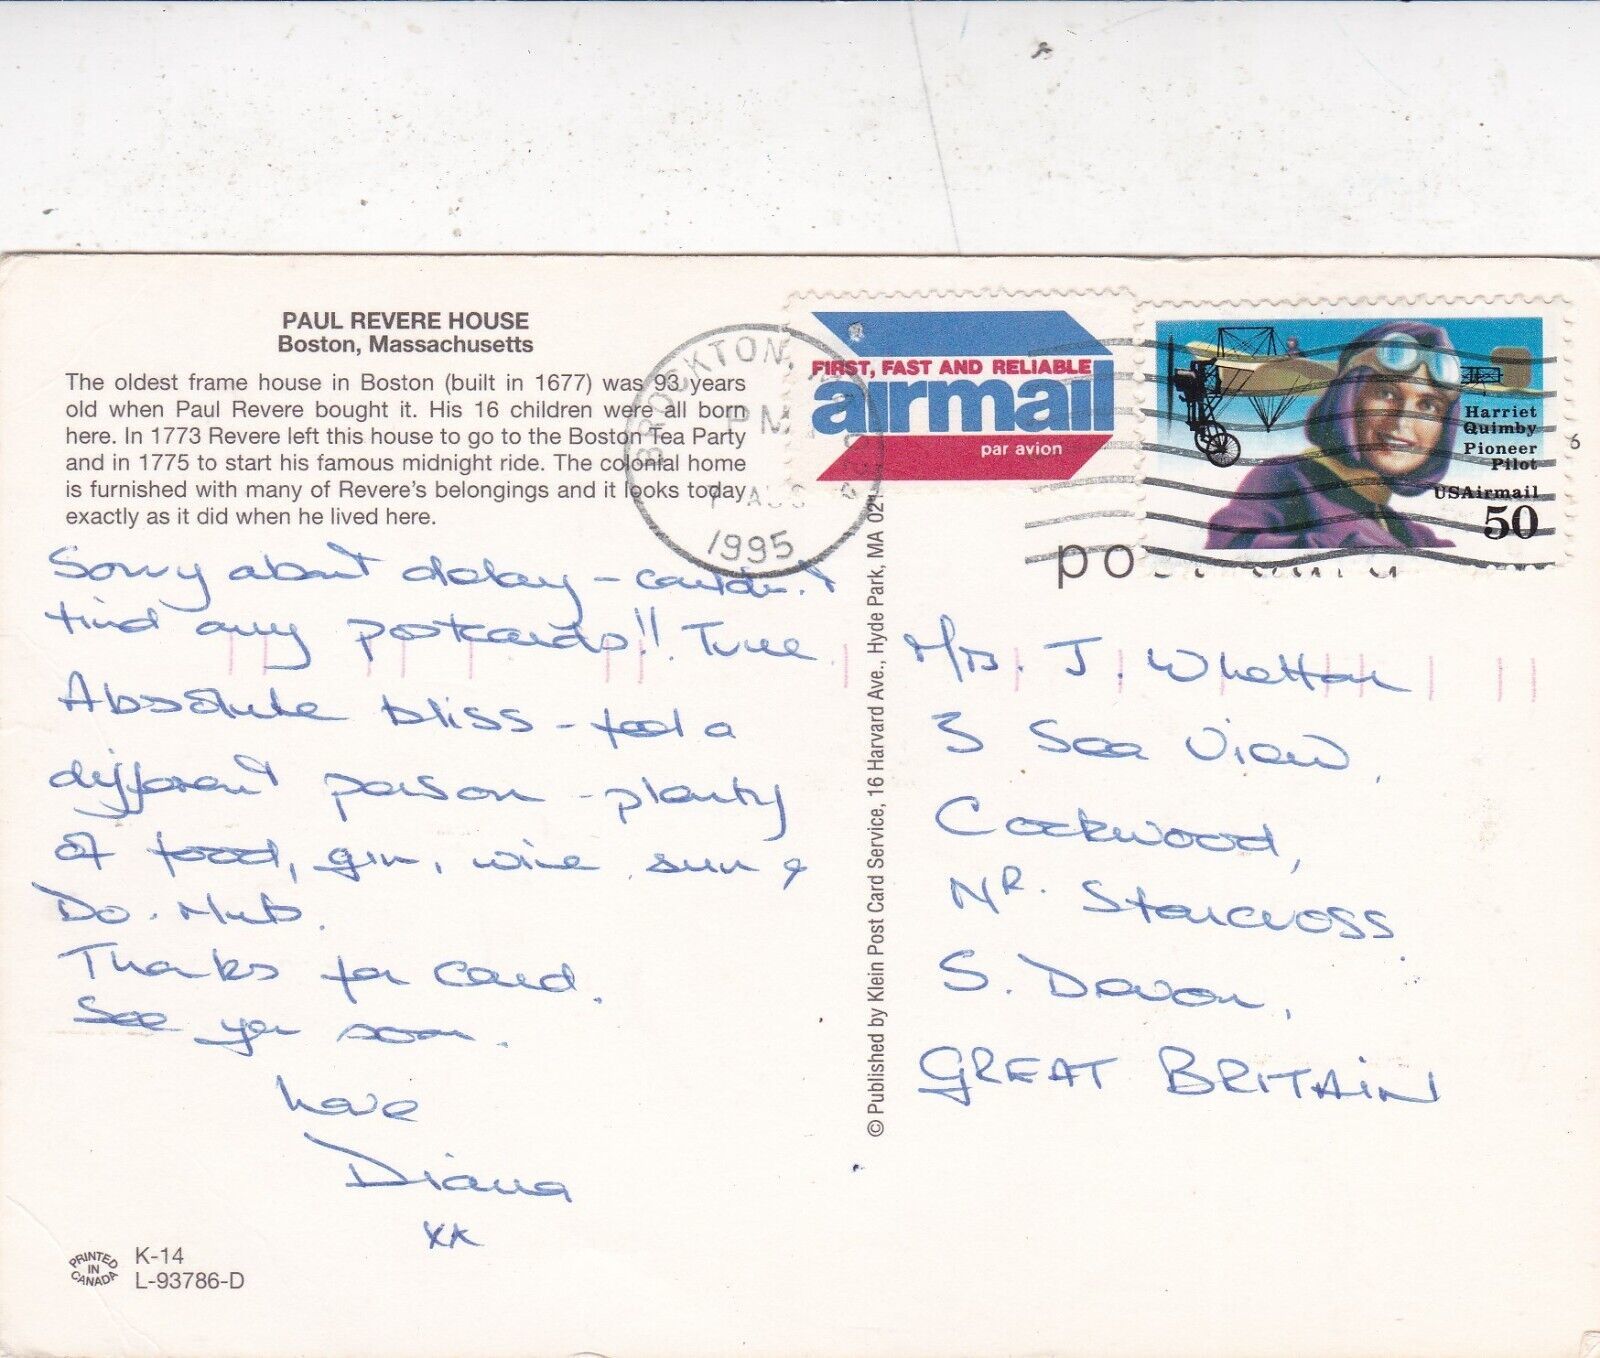 PAUL REVERE HOUSE
Boston, Massachusetts
The oldest frame house in Boston (built in 1677) was 93 years
old when Paul Revere bought it. His 16 children were all born
here. In 1773 Revere left this house to go to the Boston Tea Party
and in 1775 to start his famous midnight ride. The colonial home
is furnished with many of Revere's belongings and it looks today
exactly as it did when he lived here.
Sorry about delay - couldn't
find any postcards!! True
Absolute bliss - feel a
different person - plenty
of food, gin, wine, sun &
Thanks for card.
See you soon.
Love
Diana
xx
PRINTED
IN
CANADA
K-14
L-93786-D
BROCKTON, M
PM
AUG
1995
FIRST, FAST AND RELIABLE
airmail
par avion
Harriet
Quimby
Pioneer
Pilot
USAirmail
50
6
po
© Published by Klein Post Card Service, 16 Harvard Ave., Hyde Park, MA 021
Mrs. J. Whetton
3 Sea View,
Cockwood,
Nr. Starcross
S. Devon,
GREAT BRITAIN